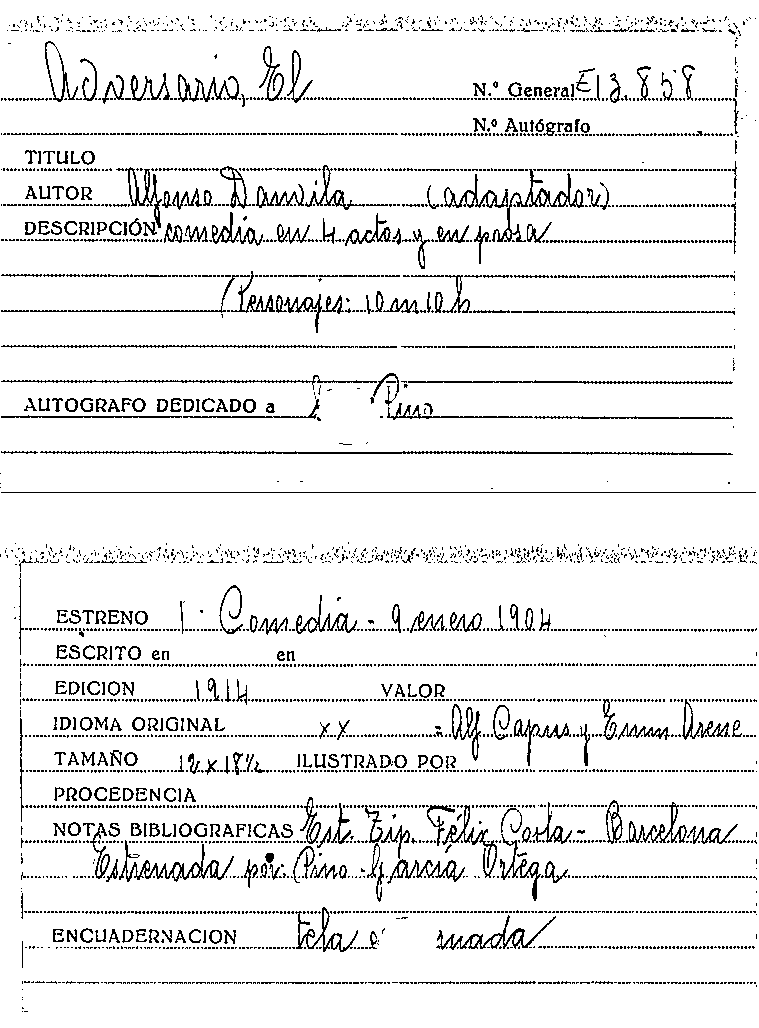 Adversario, El
N.º General E13.858
N.º Autógrafo
TITULO
AUTOR Alfonso Danvila (adaptador)
DESCRIPCIÓN comedia en 4 actos y en prosa
(Personajes: 10 m 10 h
AUTOGRAFO DEDICADO a Pino
ESTRENO Comedia - 9 enero 1904
ESCRITO en en
EDICION 1914 VALOR
IDIOMA ORIGINAL xx = Alf Capus y Emm Arene
TAMAÑO 12 x 18½ ILUSTRADO POR
PROCEDENCIA
NOTAS BIBLIOGRAFICAS Est. Tip. Félix Costa - Barcelona
Estrenada por: Pino - García Ortega
ENCUADERNACION tela